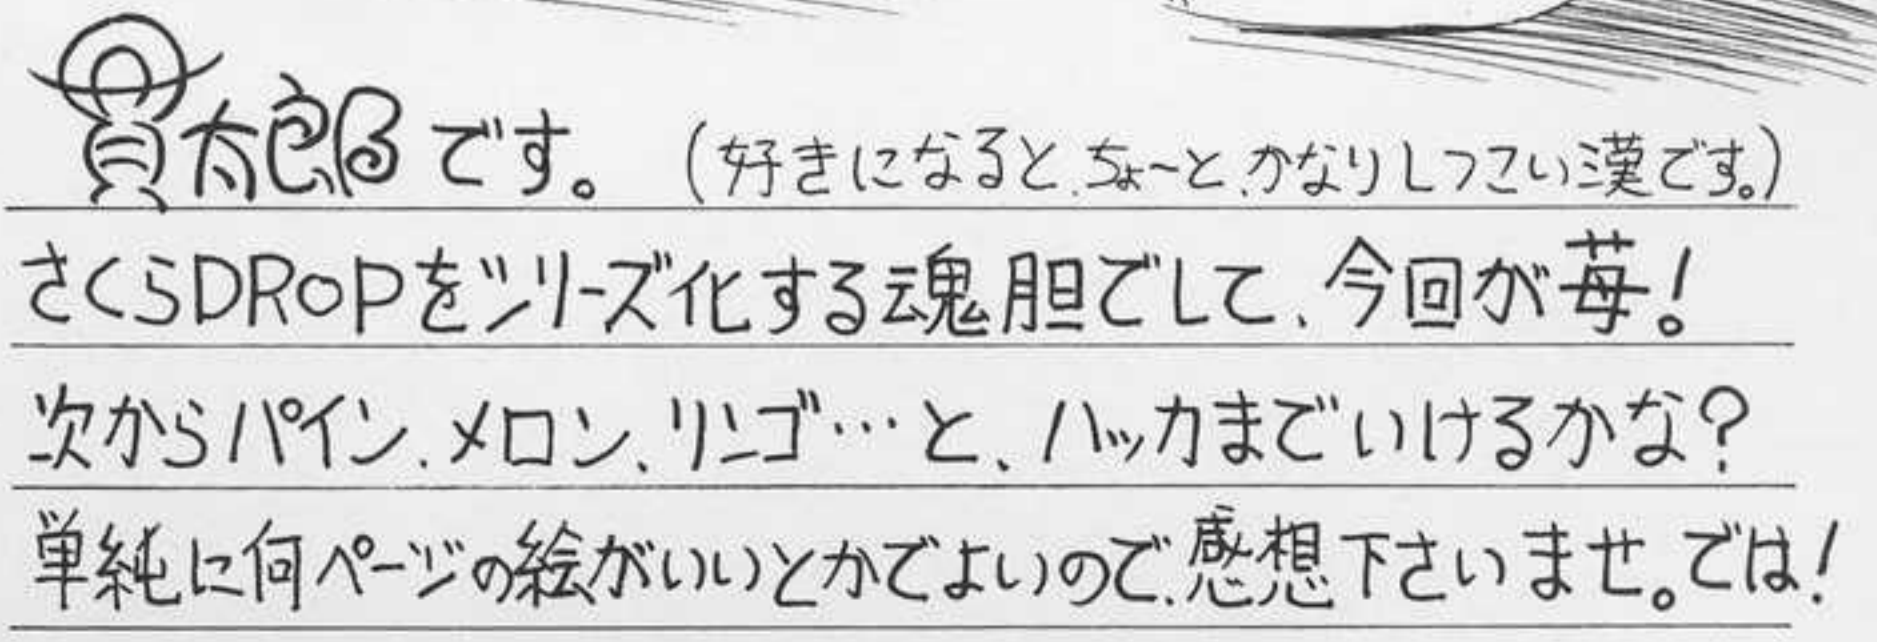 貫太郎です。(好きになると、ちょ〜と、かなりしつこい漢です。)
さくらDROPをシリーズ化する魂胆でして、今回が苺!
次からパイン、メロン、リンゴ…と、ハッカまでいけるかな?
単純に何ページの絵がいいとかでよいので、感想下さいませ。では!